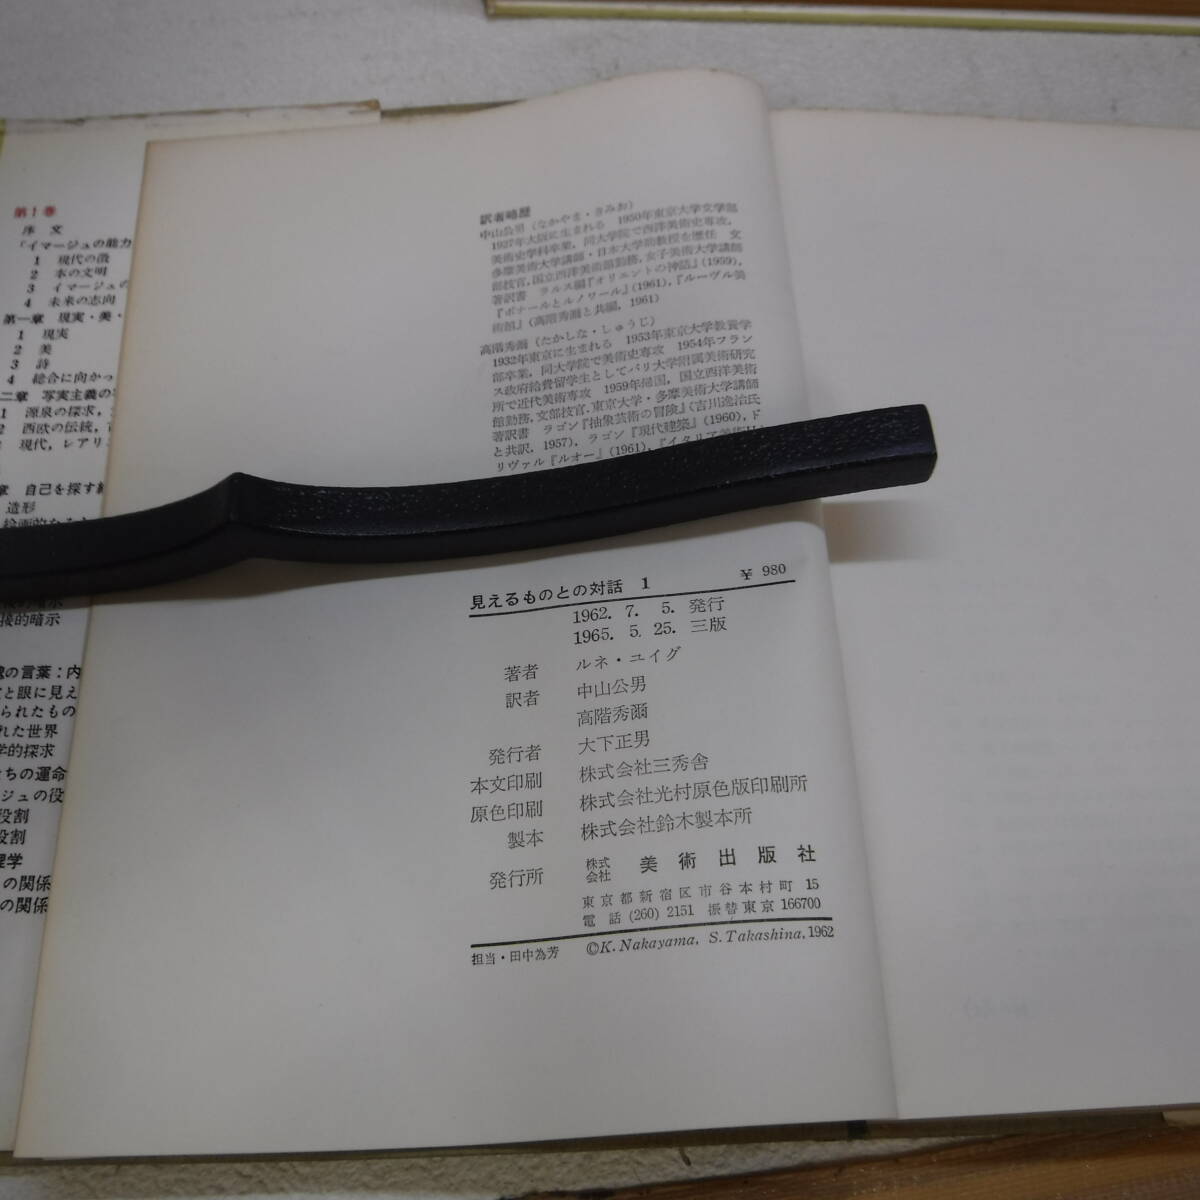 第1巻
序文
「イマージュの能力
1 現代の徴
2 本の文明
3 イマージュの
4 未来の志向
第一章 現実・美・
1 現実
2 美
3 詩
4 総合に向かっ
二章 写実主義の
1 源泉の探求,
2 西欧の伝統,
現代, レアリ
章 自己を探す
造形
接的暗示
の言葉:内
と眼に見え
られたもの
れた世界
学的探求
ちの運命
ジュの役
役割
役割
理学
の関係
の関係
訳者略歴
中山公男(なかやま・きみお)
1927年大阪に生まれる 1950年東京大学文学部
美術史学科卒業, 同大学院で西洋美術史専攻,
多摩美術大学講師・日本大学助教授を歴任 文
部技官, 国立西洋美術館勤務, 女子美術大学講師
著訳書 ヲルス編『オリエントの神話』(1959),
『ボナールとルノワール』(1961),『ルーヴル美
術館』(高階秀爾と共編, 1961)
高階秀爾(たかしな・しゅうじ)
1932年東京に生まれる 1953年東京大学教養学
部卒業, 同大学院で美術史専攻 1954年フラン
ス政府給費留学生としてパリ大学附属美術研究
所で近代美術専攻 1959年帰国, 国立西洋美術
館勤務, 文部技官, 東京大学・多摩美術大学講師
著訳書 ラゴン『抽象芸術の冒険』(吉川逸治氏
と共訳, 1957), ラゴン『現代建築』(1960), ド
リヴァル『ルオー』(1961),『イタリア美術
見えるものとの対話 1 ¥ 980
1962. 7. 5. 発行
1965. 5. 25. 三版
著者 ルネ・ユイグ
訳者 中山公男
高階秀爾
発行者 大下正男
本文印刷 株式会社三秀舎
原色印刷 株式会社光村原色版印刷所
製本 株式会社鈴木製本所
発行所 株式会社 美術出版社
東京都新宿区市谷本村町 15
電話 (260) 2151 振替東京 166700
担当・田中為芳 ©K. Nakayama, S. Takashina, 1962